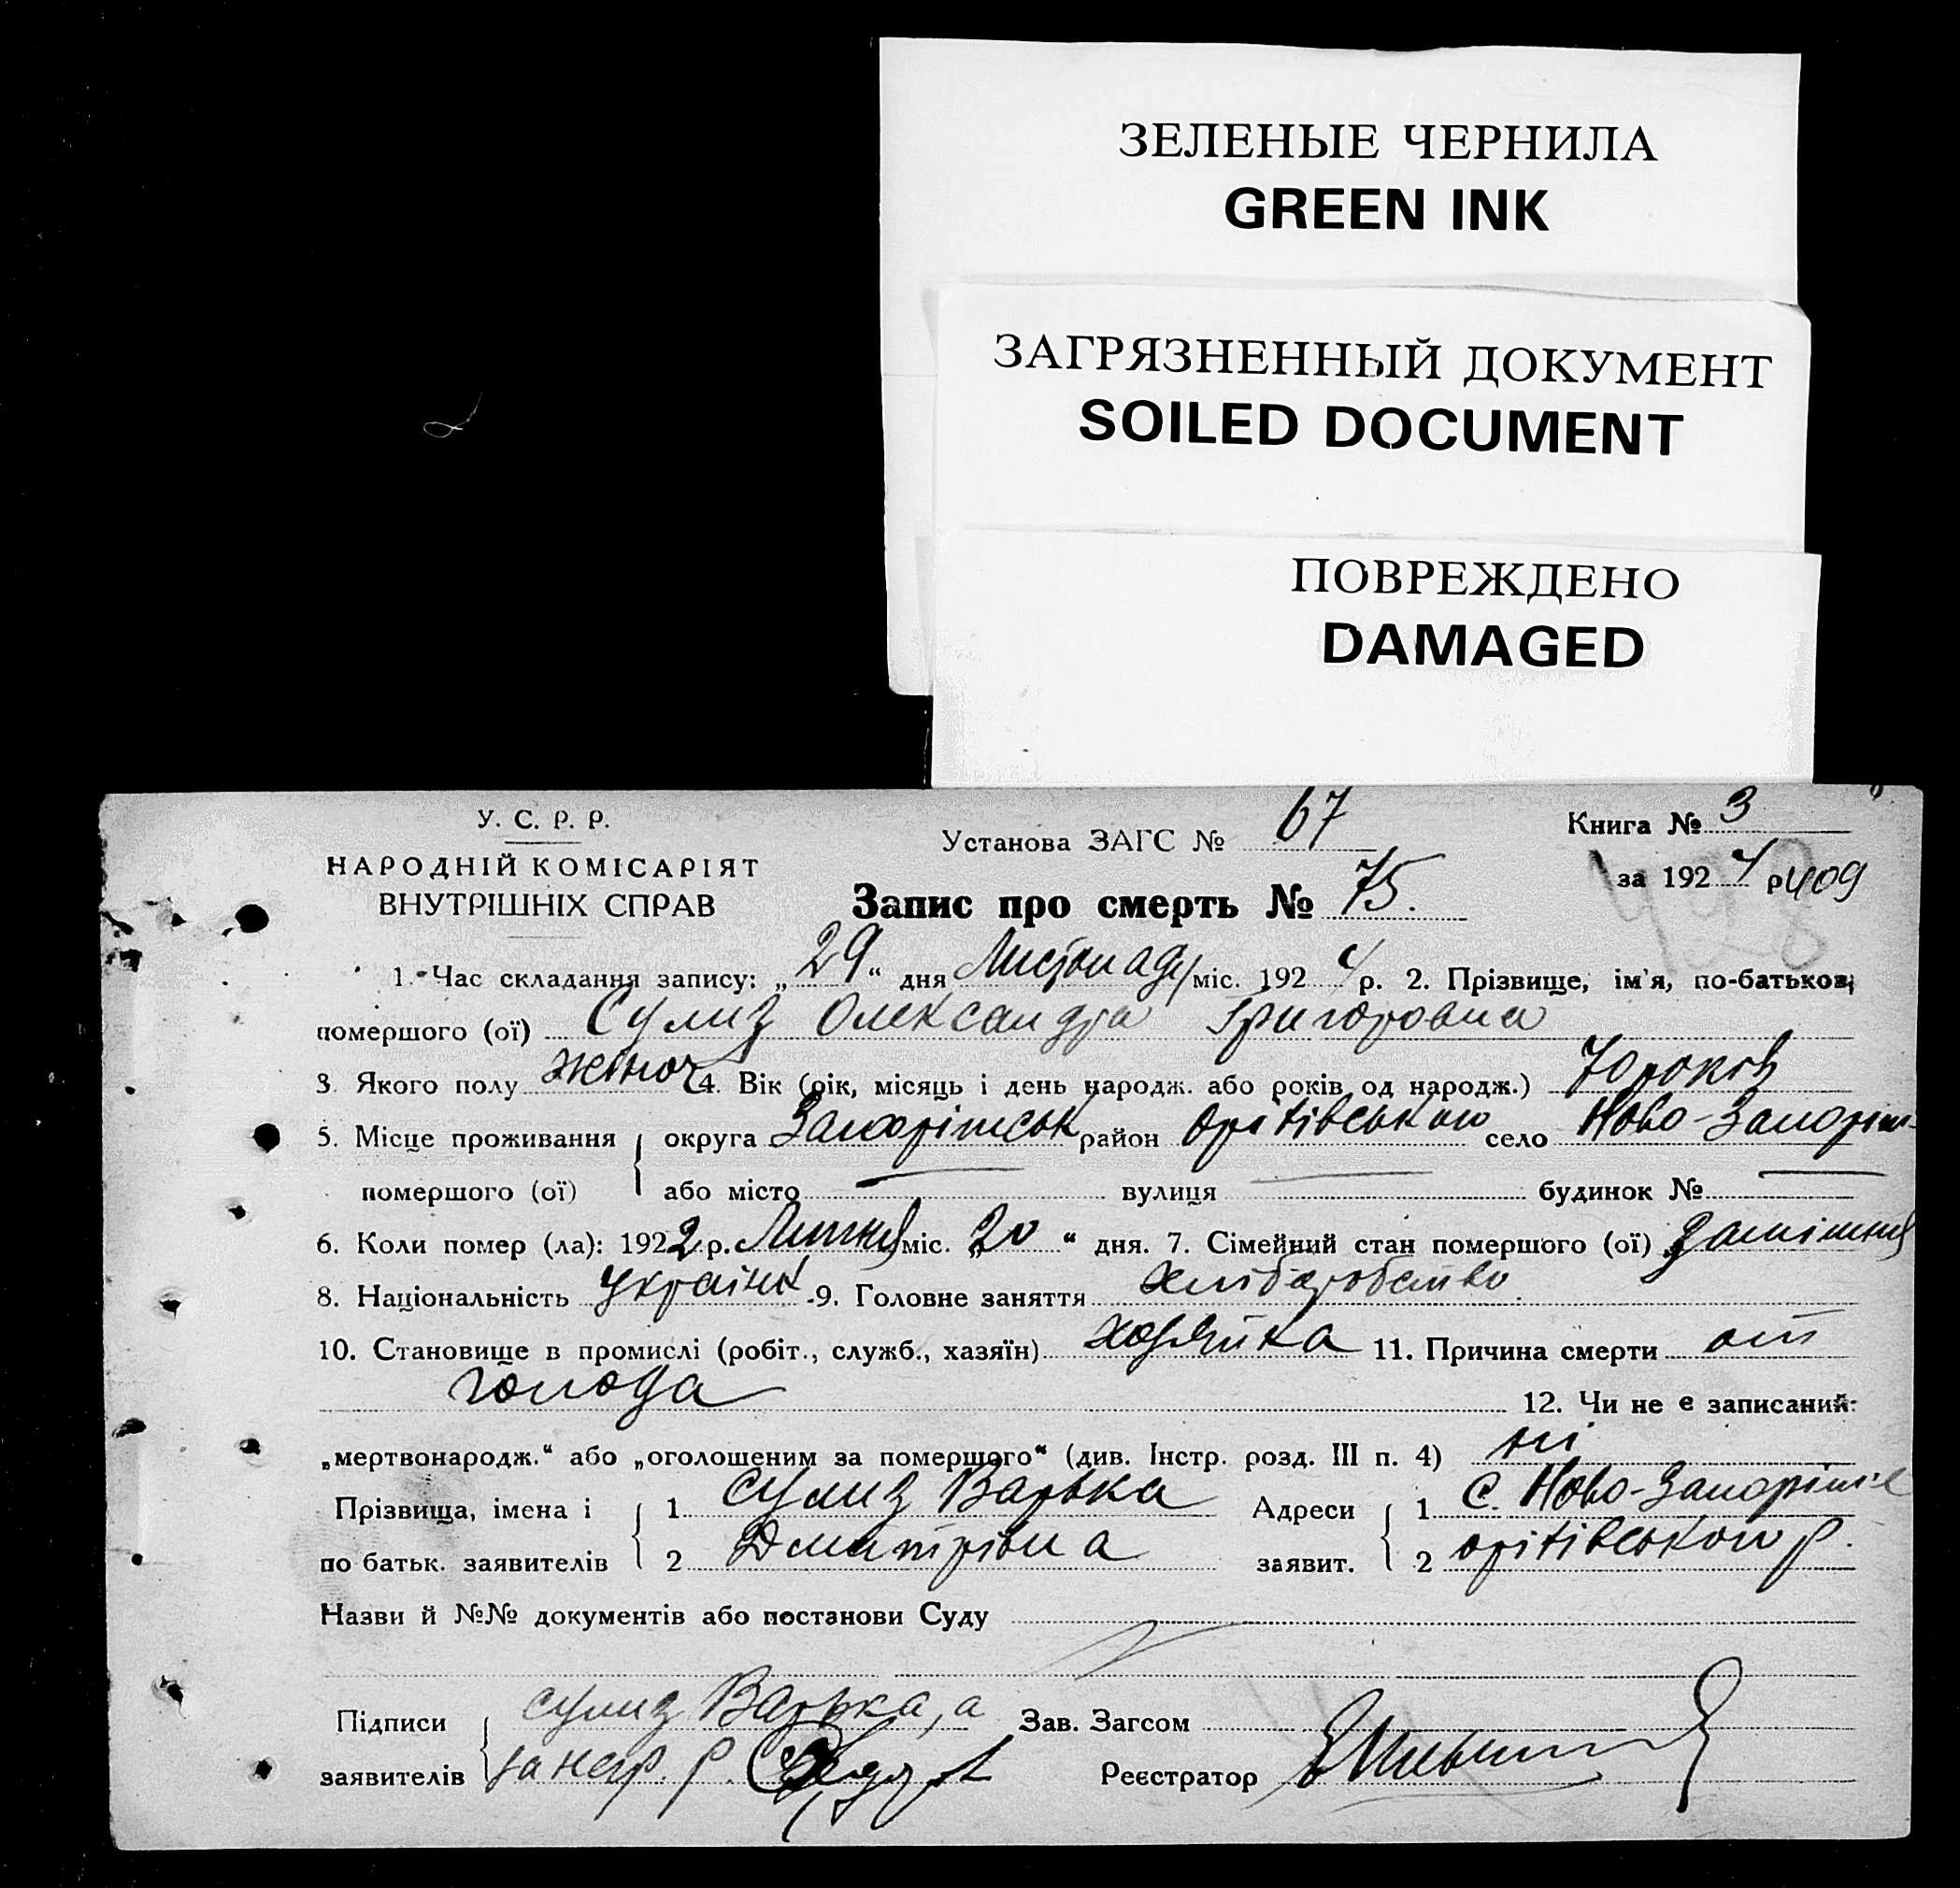 ЗЕЛЕНЫЕ ЧЕРНИЛА
GREEN INK
ЗАГРЯЗНЕННЫЙ ДОКУМЕНТ
SOILED DOCUMENT
ПОВРЕЖДЕНО
DAMAGED
У. С. Р. Р.
НАРОДНІЙ КОМІСАРІЯТ
ВНУТРІШНІХ СПРАВ
Установа ЗАГС № 67
Книга № 3
за 1924 р 409
Запис про смерть № 75.
1. Час складання запису: „29“ дня Листопаду міс. 1924 р. 2. Прізвище, ім'я, по-батькові
помершого (ої) Сулиз Олександра Григоровна
3. Якого полу жіноч 4. Вік (рік, місяць і день народж. або років од народж.) 70 років
5. Місце проживання округа Запоріжськ район Орітівського село Ново-Запоріж
помершого (ої) або місто вулиця будинок №
6. Коли помер (ла): 1922 р. Липня міс. „20“ дня. 7. Сімейний стан помершого (ої) Заміжня
8. Національність Україн 9. Головне заняття Хлібаробство
10. Становище в промислі (робіт., служб., хазяїн) хозяйка 11. Причина смерти от
голода 12. Чи не є записаний:
„мертвонародж.“ або „оголошеним за помершого“ (див. Інстр. розд. III п. 4) ні
Прізвища, імена і 1 Сулиз Варька Адреси 1 С. Ново-Запоріж
по батьк. заявителів 2 Дмитрівна заявит. 2 Орітівського р.
Назви й №№ документів або постанови Суду
Підписи Сулиз Варька, а Зав. Загсом
заявителів за негр. р. Реєстратор